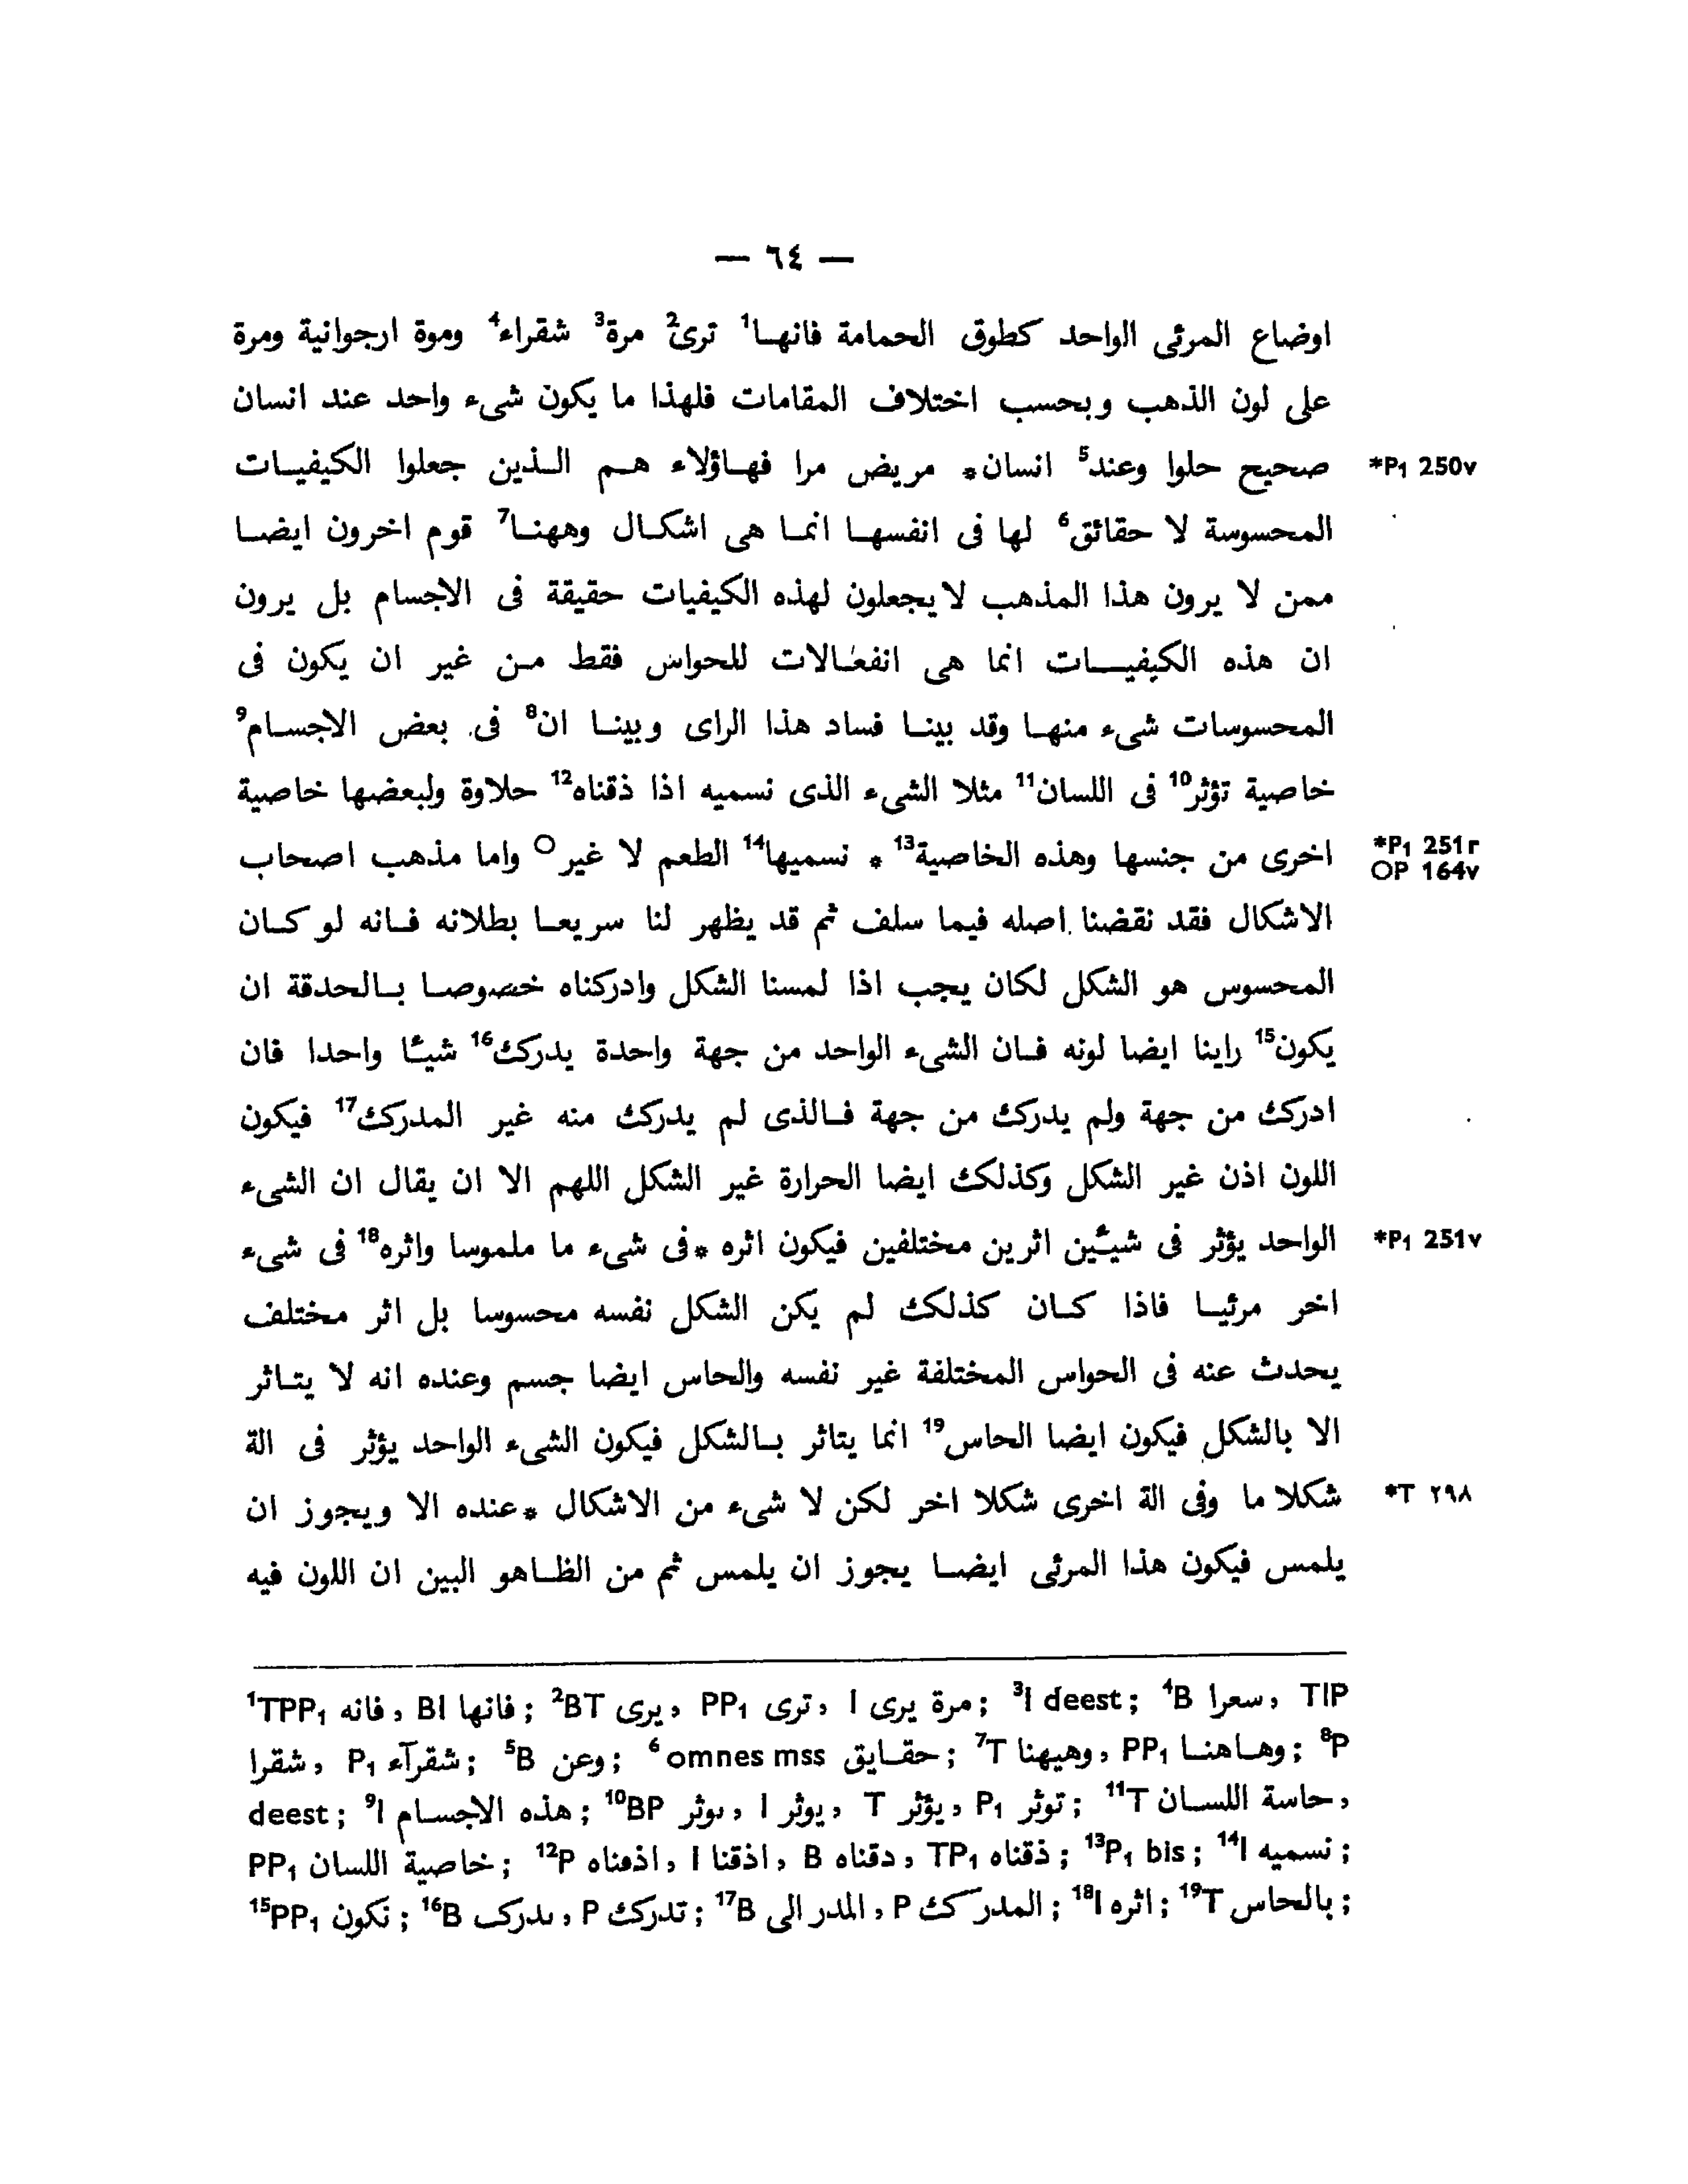 — ٦٤ —
اوضاع المرئى الواحد كطوق الحمامة فانهـا¹ ترىٰ² مرة³ شقراء⁴ وموة ارجوانية ومرة
على لون الذهب وبحسب اختلاف المقامات فلهذا ما يكون شىء واحد عند انسان
صحيح حلوا وعند⁵ انسان* مريض مرا فهـاؤلاء هـم الـذين جعلوا الكيفيـات *P₁ 250v
المحسوسة لا حقائق⁶ لها فى انفسهـا انمـا هى اشكـال وههنـا⁷ قوم اخرون ايضـا
ممن لا يرون هذا المذهب لا يجعلون لهذه الكيفيات حقيقة فى الاجسام بل يرون
ان هذه الكيفيـــات انما هى انفعـالات للحواس فقط مـن غير ان يكون فى
المحسوسات شىء منهـا وقد بينـا فساد هذا الراى وبينـا ان⁸ فى بعض الاجسـام⁹
خاصية تؤثر¹⁰ فى اللسان¹¹ مثلا الشىء الذى نسميه اذا ذقناه¹² حلاوة ولبعضها خاصية
اخرى من جنسها وهذه الخاصية¹³ * نسميها¹⁴ الطعم لا غير○ واما مذهب اصحاب *P₁ 251r ○P 164v
الاشكال فقد نقضنا اصله فيما سلف ثم قد يظهر لنا سريعـا بطلانه فـانه لو كـان
المحسوس هو الشكل لكان يجب اذا لمسنا الشكل وادركناه خصوصـا بـالحدقة ان
يكون¹⁵ راينا ايضا لونه فـان الشىء الواحد من جهة واحدة يدرك¹⁶ شيـًٔا واحدا فان
ادرك من جهة ولم يدرك من جهة فـالذى لم يدرك منه غير المدرك¹⁷ فيكون
اللون اذن غير الشكل وكذلك ايضا الحرارة غير الشكل اللهم الا ان يقال ان الشىء
الواحد يؤثر فى شيـٔين اثرين مختلفين فيكون اثره *فى شىء ما ملموسا واثره¹⁸ فى شىء *P₁ 251v
اخر مرئيـا فاذا كـان كذلك لم يكن الشكل نفسه محسوسا بل اثر مختلف
يحدث عنه فى الحواس المختلفة غير نفسه والحاس ايضا جسم وعنده انه لا يتـاثر
الا بالشكل فيكون ايضا الحاس¹⁹ انما يتاثر بـالشكل فيكون الشىء الواحد يؤثر فى الة
شكلا ما وفى الة اخرى شكلا اخر لكن لا شىء من الاشكال *عنده الا ويجوز ان *T ٢٩٨
يلمس فيكون هذا المرئى ايضـا يجوز ان يلمس ثم من الظـاهو البين ان اللون فيه
¹TPP₁ فانه ، BI فانها ; ²BT يرى ، PP₁ ترى ، I مرة يرى ; ³I deest ; ⁴B سعرا ، TIP
شقرا ، P₁ شقرآء ; ⁵B وعن ; ⁶omnes mss حقـايق ; ⁷T وهيهنا ، PP₁ وهـاهنـا ; ⁸P
deest ; ⁹I هذه الاجسـام ; ¹⁰BP ىوثر ، I يوثر ، T يؤثر ، P₁ توثر ; ¹¹T حاسة اللسـان ،
PP₁ خاصية اللسان ; ¹²P اذمناه ، I اذقنا ، B دقناه ، TP₁ ذقناه ; ¹³P₁ bis ; ¹⁴I نسميه ;
¹⁵PP₁ نكون ; ¹⁶B ىدرك ، P تدرك ; ¹⁷B المدر الى ، P المدرك ; ¹⁸I اثره ; ¹⁹T بالحاس ;